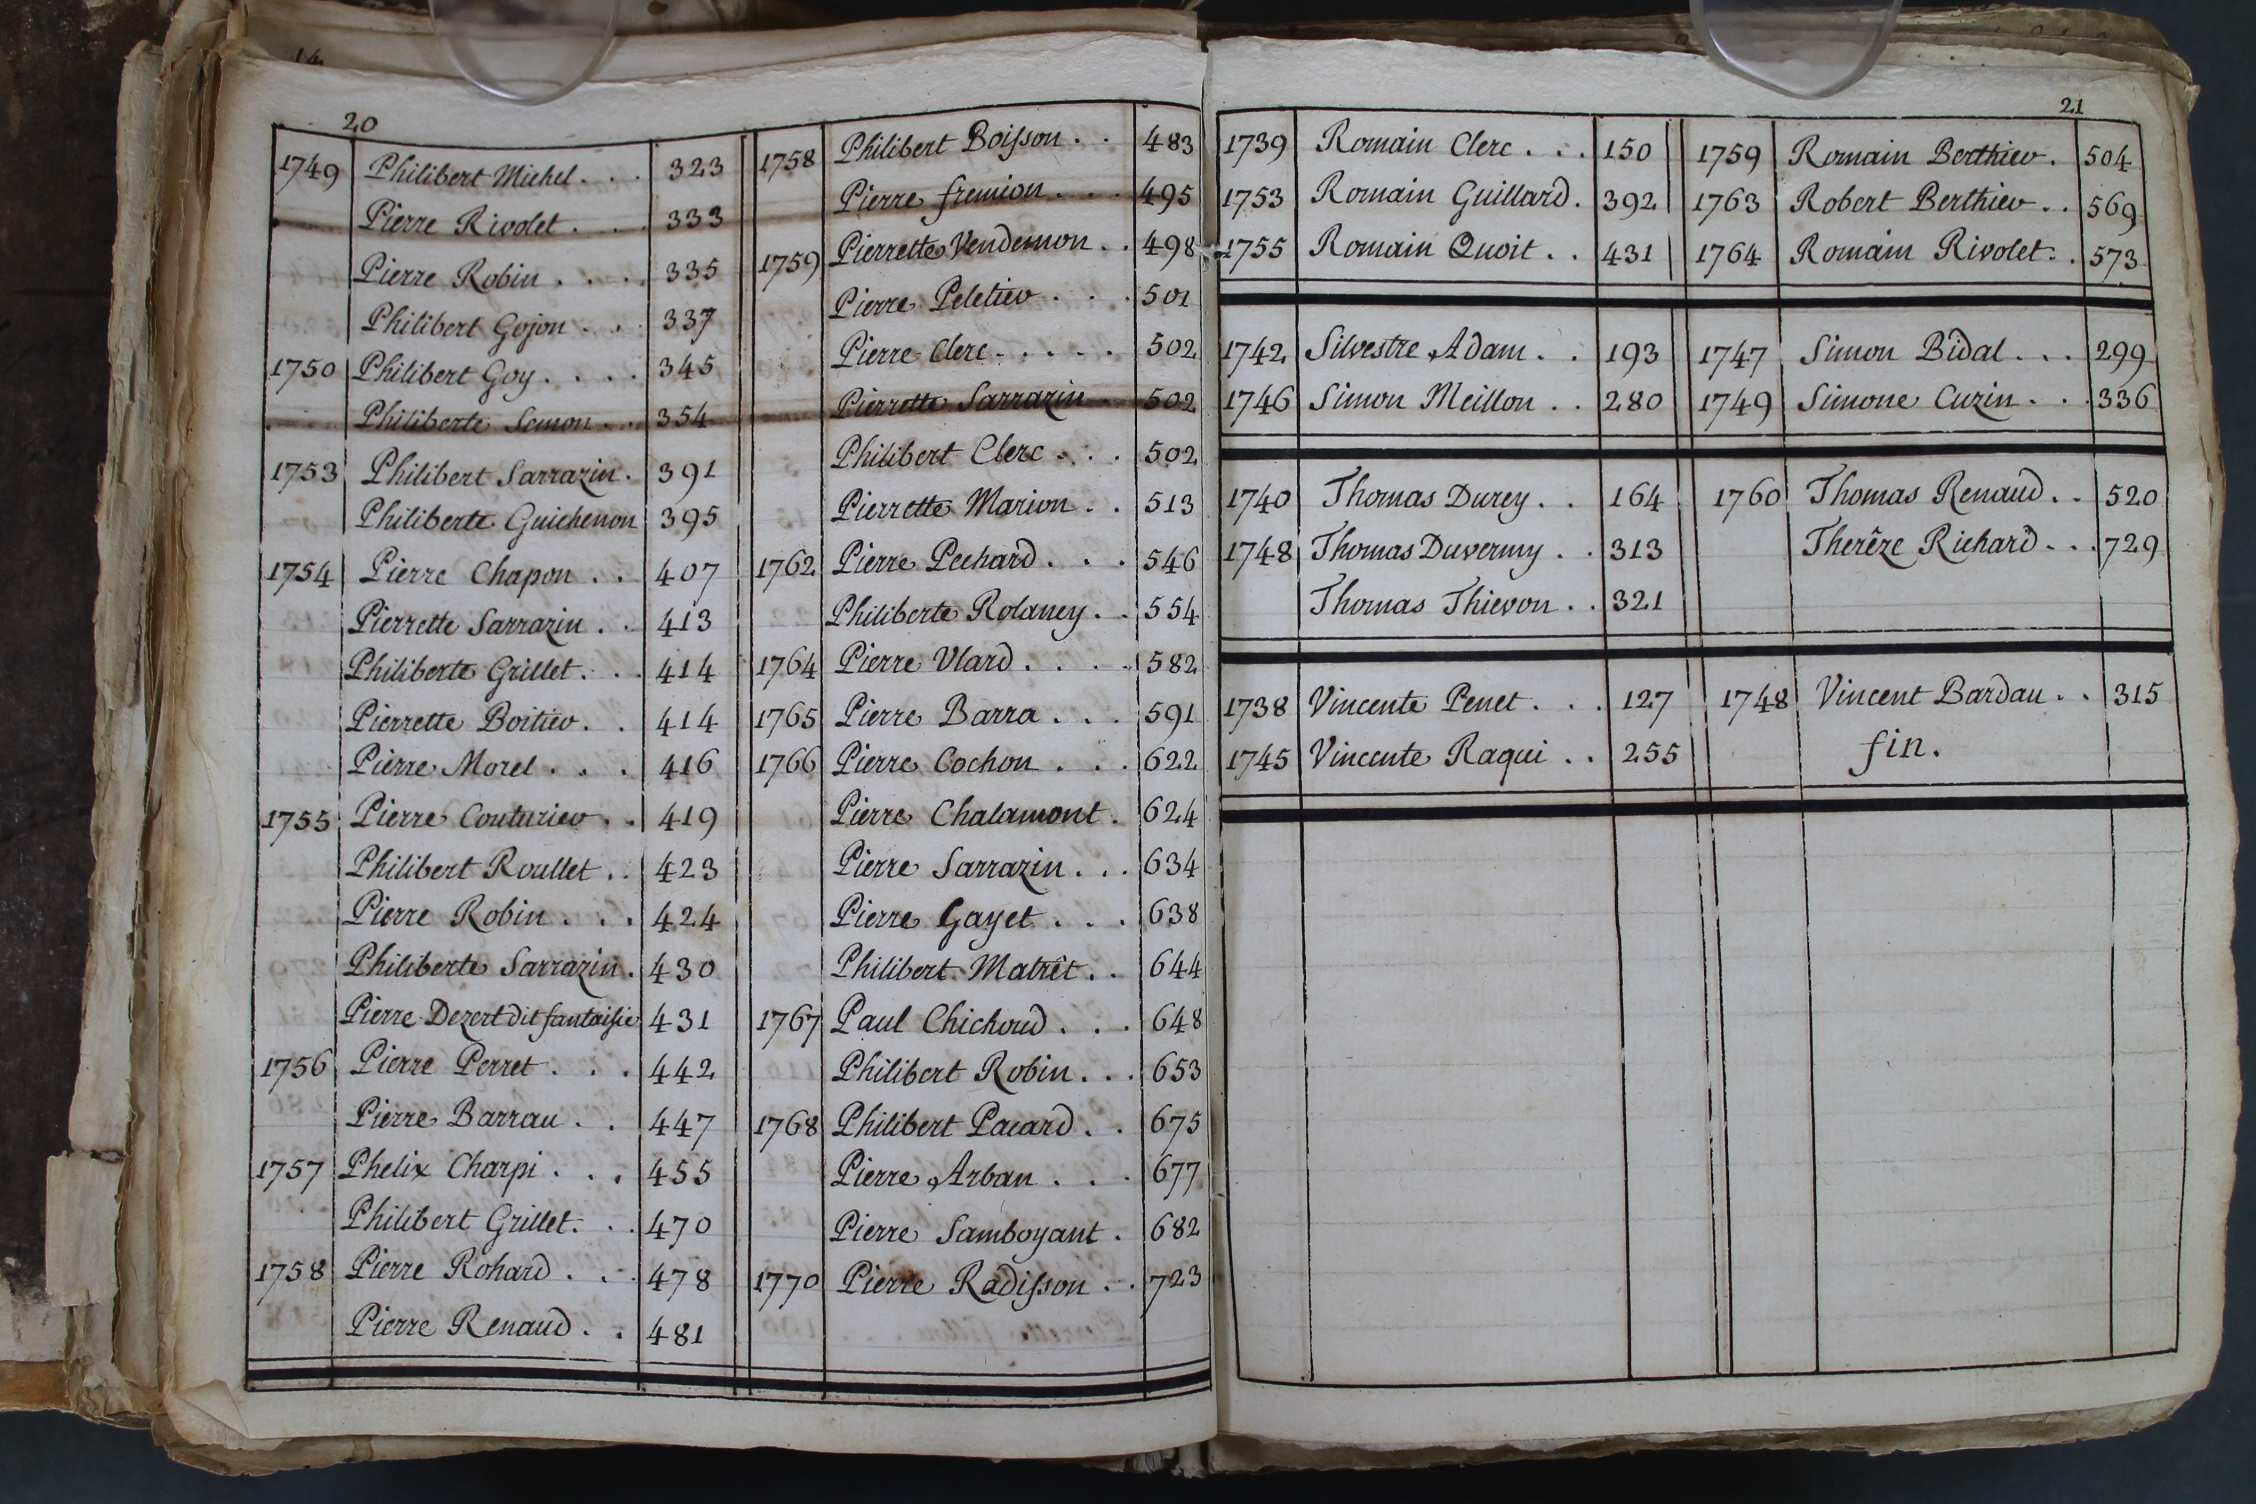 20
1749 Philibert Michel . . . 323
Pierre Rivolet . . . 333
Pierre Robin . . . . 335
Philibert Gojon . . . 337
1750 Philibert Goy . . . . 345
Philiberte Semon . . . 354
1753 Philibert Sarrazin . 391
Philiberte Guichenon 395
1754 Pierre Chapon . . 407
Pierrette Sarrazin . . 413
Philiberte Grillet . . . 414
Pierrette Boitier . . 414
Pierre Morel . . . 416
1755 Pierre Couturier . . 419
Philibert Roullet . . 423
Pierre Robin . . . 424
Philiberte Sarrazin . 430
Pierre Dezert dit fantaisie 431
1756 Pierre Perret . . . 442
Pierre Barrau . . 447
1757 Phelix Charpi . . . 455
Philibert Grillet . . . 470
1758 Pierre Rohard . . . 478
Pierre Renaud . . 481
1758 Philibert Boisson . . 483
Pierre fremion . . . 495
1759 Pierrette Vendemon . . 498
Pierre Peletier . . . 501
Pierre Clerc . . . . . 502
Pierrette Sarrazin . 502
Philibert Clerc . . . 502
Pierrette Marion . . 513
1762 Pierre Pechard . . . 546
Philiberte Rolancy . . 554
1764 Pierre Vlard . . . . 582
1765 Pierre Barra . . . 591
1766 Pierre Cochon . . . 622
Pierre Chalamont . 624
Pierre Sarrazin . . . 634
Pierre Gayet . . . 638
Philibert Matrêt . . 644
1767 Paul Chichoud . . . 648
Philibert Robin . . . 653
1768 Philibert Pacard . . 675
Pierre Arban . . . 677
Pierre Samboyant . 682
1770 Pierre Radisson . . 723
21
1739 Romain Clerc . . . 150
1753 Romain Guillard . 392
1755 Romain Quoit . . 431
1759 Romain Berthier . 504
1763 Robert Berthier . . 569
1764 Romain Rivolet . . 573
1742 Silvestre Adam . . 193
1746 Simon Meillon . . 280
1747 Simon Bidal . . . 299
1749 Simone Cuzin . . . 336
1740 Thomas Durey . . 164
1748 Thomas Duverny . . 313
Thomas Thievon . . 321
1760 Thomas Renaud . . 520
Therêze Richard . . . 729
1738 Vincente Penet . . . 127
1745 Vincente Raqui . . 255
1748 Vincent Bardau . . 315
fin.